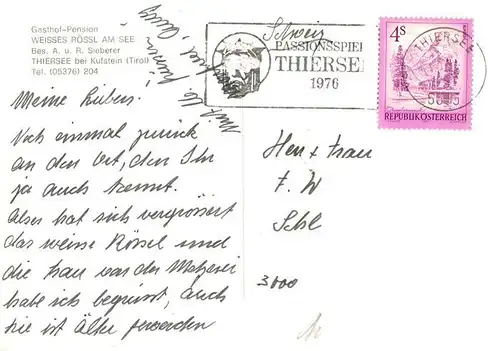 Gasthof-Pension
WEISSES RÖSSL AM SEE
Bes. A. u. R. Sieberer
THIERSEE bei Kufstein (Tirol)
Tel. (05376) 204
Meine Lieben!
Noch einmal zurück
an den Ort, den Ihr
ja auch kennt.
Alles hat sich vergrössert
das weisse Rössel und
die Frau von der Metzgerei
habe ich begrüsst, auch
sie ist älter geworden
Schweiz
PASSIONSSPIEL
THIERSEE
1976
THIERSEE
4S
REPUBLIK ÖSTERREICH
Herr + Frau
F. W
Schl
3000